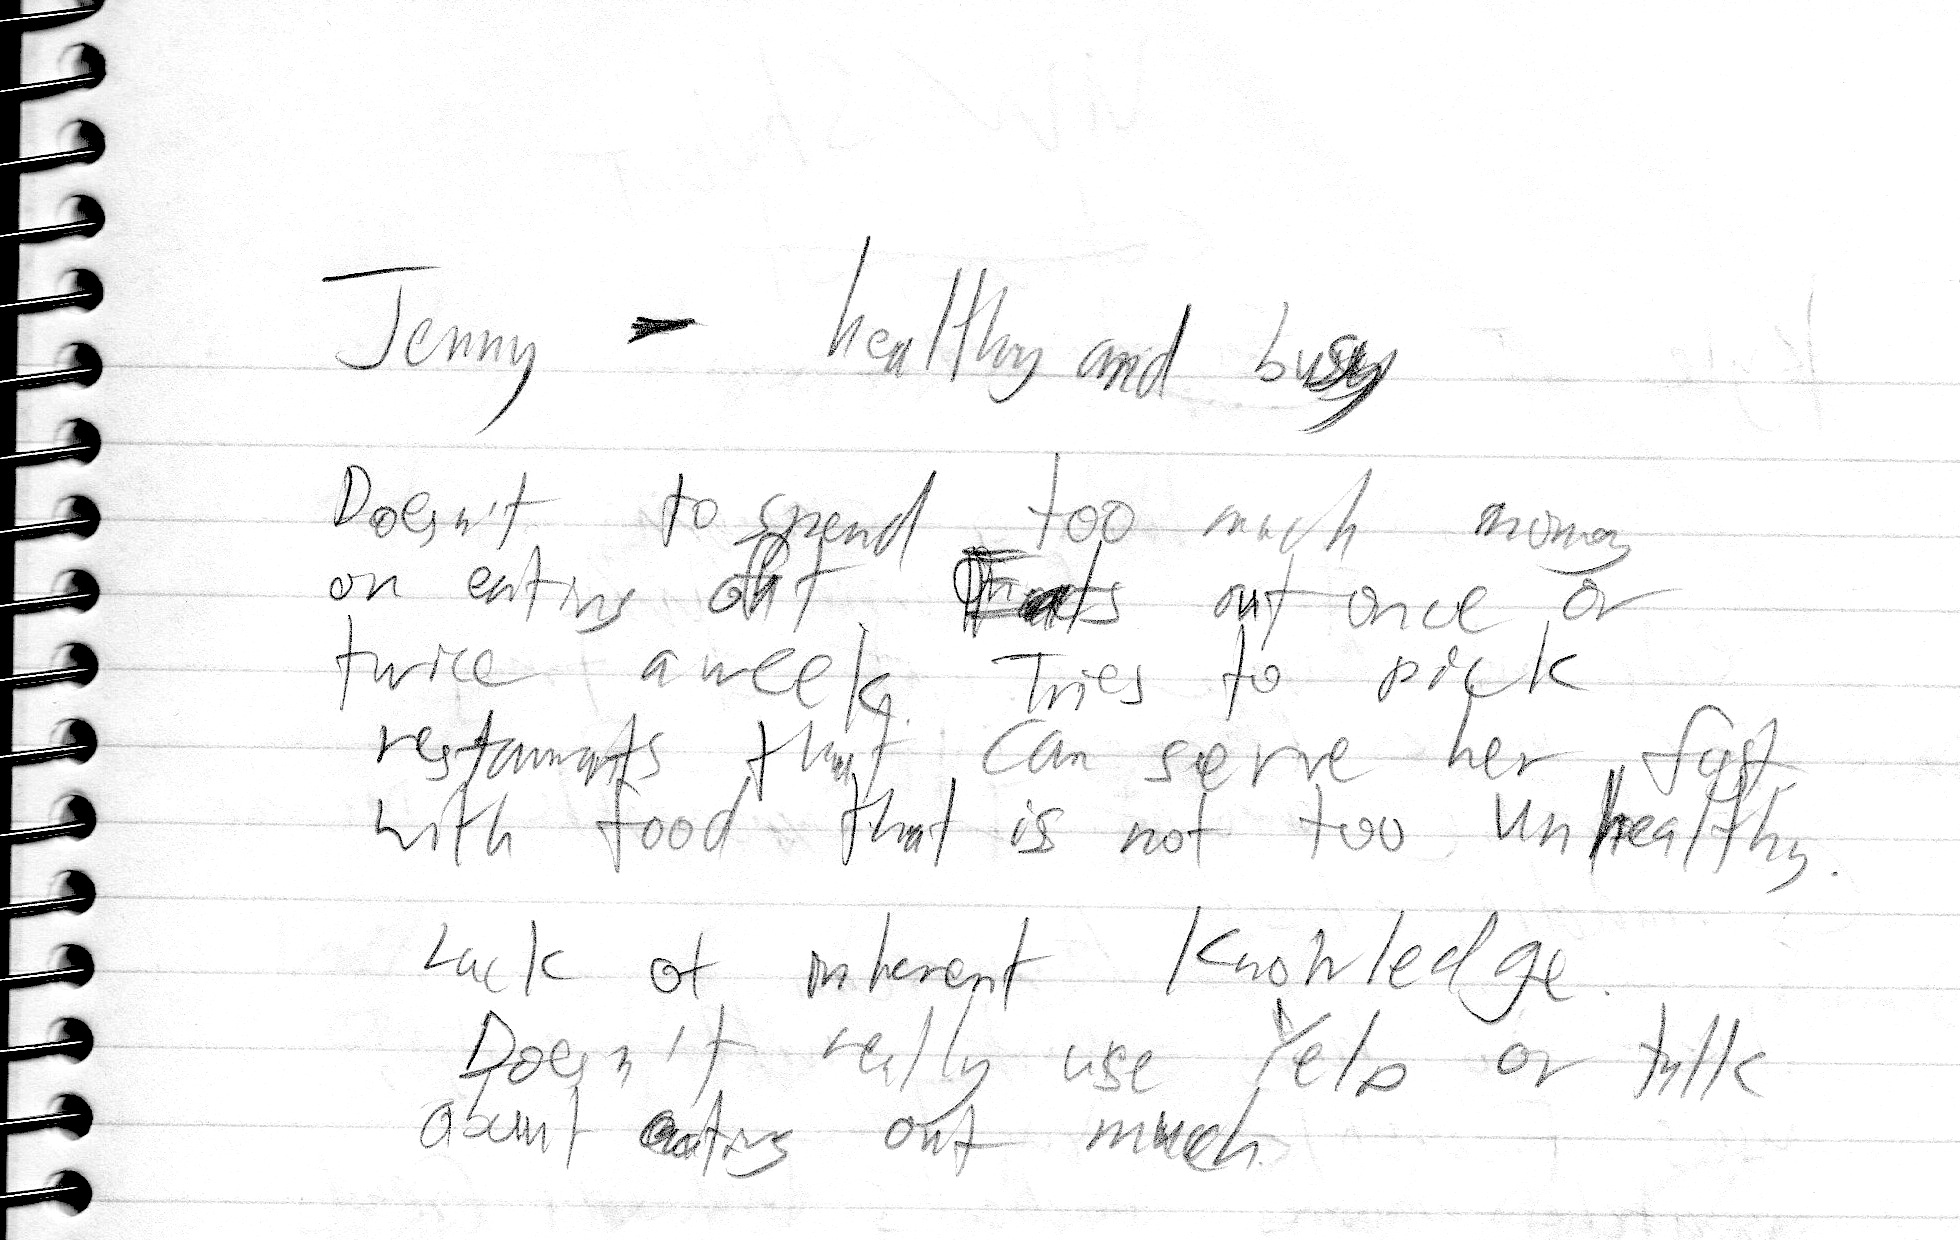 Jenny - healthy and busy
Doesn't to spend too much money
on eating out Eats out once or
twice a week. Tries to pick
restaurants that can serve her fast
with food that is not too unhealthy.
Lack of inherent knowledge.
Doesn't really use Yelp or talk
about eating out much.